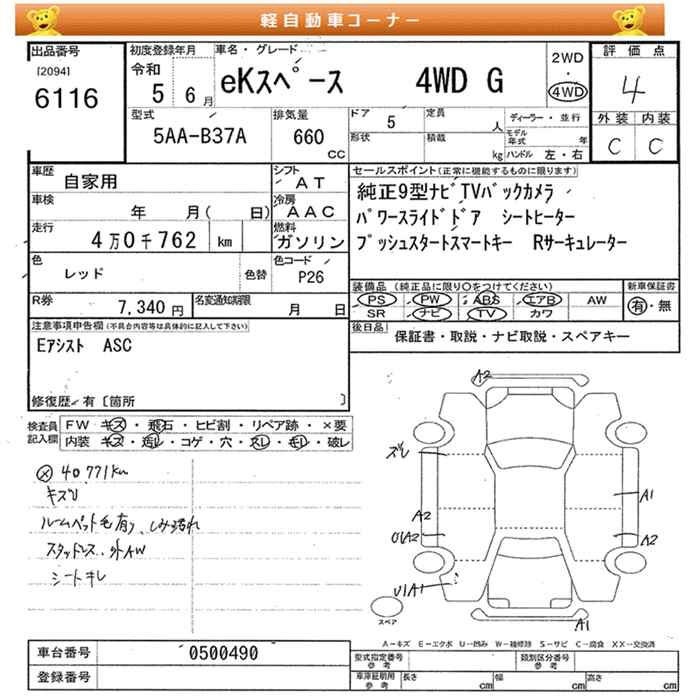 軽自動車コーナー
出品番号
[2094]
6116
初度登録年月
令和
5 6月
車名・グレード
eKスペース 4WD G
2WD
・
4WD
評価点
4
外装 内装
C C
型式
5AA-B37A
排気量
660
cc
ドア 5
定員
人
形状
積載
kg
ディーラー・並行
モデル年式
年
ハンドル 左・右
車歴
自家用
シフト
AT
車検
年 月( 日)
冷房
AAC
走行
4万0千762 km
燃料
ガソリン
色
レッド
色替
色コード
P26
R券
7,340円
名変通知期限
月 日
セールスポイント(正常に機能するものに限ります)
純正9型ナビTVバックカメラ
パワースライドドア シートヒーター
プッシュスタートスマートキー Rサーキュレーター
装備品(純正品に限り〇をつけてください)
PS PW ABS エアB AW
SR ナビ TV カワ
新車保証書
有・無
後日品
保証書・取説・ナビ取説・スペアキー
注意事項申告欄(不具合内容等は具体的に記入して下さい)
Eアシスト ASC
修復歴・有〔箇所 〕
検査員
記入欄
FW キズ・飛石・ヒビ割・リペア跡・×要
内装 キズ・汚レ・コゲ・穴・スレ・モレ・破レ
40,771km
キズU
ルームペット毛有り、しみ汚れ
スタッドレス、外AW
シートキレ
A2
ズレ
A1
A2
U1A2
A2
U1A1
A1
スペア
A－キズ E－エクボ U－凹み W－補修跡 S－サビ C－腐食 XX－交換済
車台番号
0500490
登録番号
型式指定番号
参考
類別区分番号
参考
車庫証明用
参考
長さ
cm
幅
cm
高さ
cm